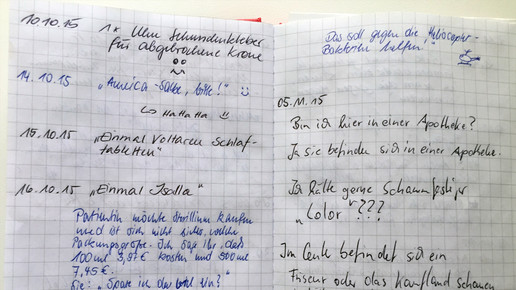 10.10.15 1x Uhu Sekundenkleber
für abgebrochene Krone
14.10.15 "Aurica-Salbe, bitte!"
HaHaHa
15.10.15 "Einmal Voltaren Schlaf-
tabletten"
16.10.15 "Einmal Isalla"
Patientin möchte kaufen
und ist sich nicht sicher, welche
Packungsgröße. Ich sag ihr, daß
100ml 3,97€ kosten und 500ml
7,45€.
Sie: "Spare ich da was ein?"
Das soll gegen die Helicopter-
Bakterien helfen"
05.11.15
Bin ich hier in einer Apotheke?
Ja sie befinden sich in einer Apotheke.
Ich hätte gerne Schaumfestiger
"Color"???
Im Center befindet sich ein
Friseur oder das Kaufland schauen